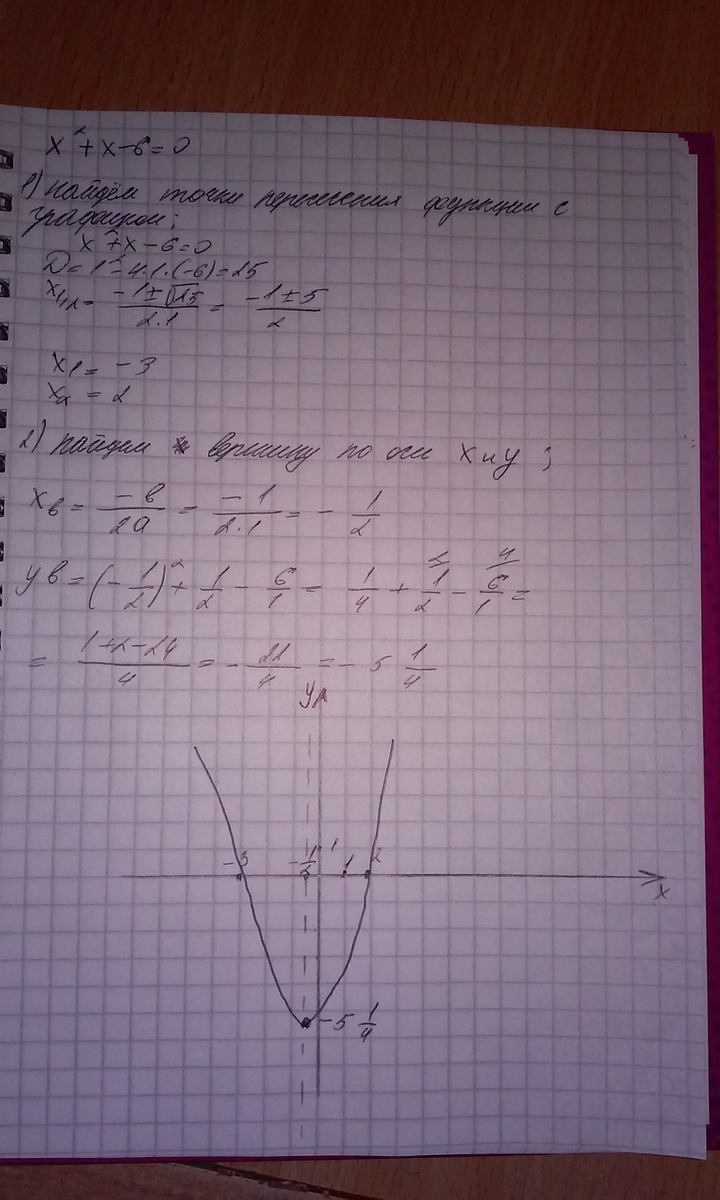 x² + x - 6 = 0
1) найдём точки пересечения функции с
графикой;
x² + x - 6 = 0
D = 1² - 4·1·(-6) = 25
x₁,₂ = (-1 ± √25)/(2·1) = (-1 ± 5)/2
x₁ = -3
x₂ = 2
2) найдем вершину по оси x и y;
xв = -в/2a = -1/2·1 = - 1/2
yв = (-1/2)² + 1/2 - 6/1 = 1/4 + 1/2 - 6/1 =
= (1+2-24)/4 = - 21/4 = - 5 1/4
y
-3 -1/2 1 1 2
x
-5 1/4